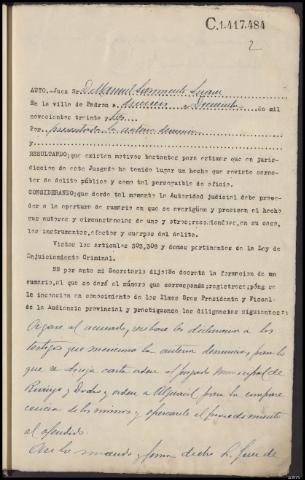 C.1.417.484
2
AUTO. Juez Sr. D. Manuel
En la villa de Padron a dieciseis Diciembre de mil
novecientos treinta y
Por presentada la anterior denuncia
y
RESULTANDO; que existen motivos bastantes para estimar que en juris-
diccion de este Juzgado ha tenido lugar un hecho que reviste carac-
ter de delito público y como tal perseguible de oficio.
CONSIDERANDO; que desde tal momento la Autoridad Judicial debe proce-
der a la apertura de sumario en que se averigüen y precisen el hecho
sus autores y circunstancias de uno y otros; recogiéndose, en su caso,
los instrumentos, efectos y cuerpos del delito.
Vistos los articulos 303, 308 y demas pertinentes de la Ley de
Enjuiciamiento Criminal.
SS por ante mi Secretario dijo: Se decreta la formacion de un
sumario, al que se dará el número que corresponda; registrese; póngase
le incoación en conocimiento de los Ilmos Sres Presidente y Fiscal
de la Audiencia provincial y practiquense las diligencias siguientes:
al acusado, recibase las declaraciones a los
testigos que menciona la anterior denuncia, para lo
que se dirija carta orden al Juzgado Municipal de
y Dodro y orden a Alguacil para la compare
cencia de los mismos y el procedimiento
al ofendido.
Así lo mando y firma dicho Sr. Juez de